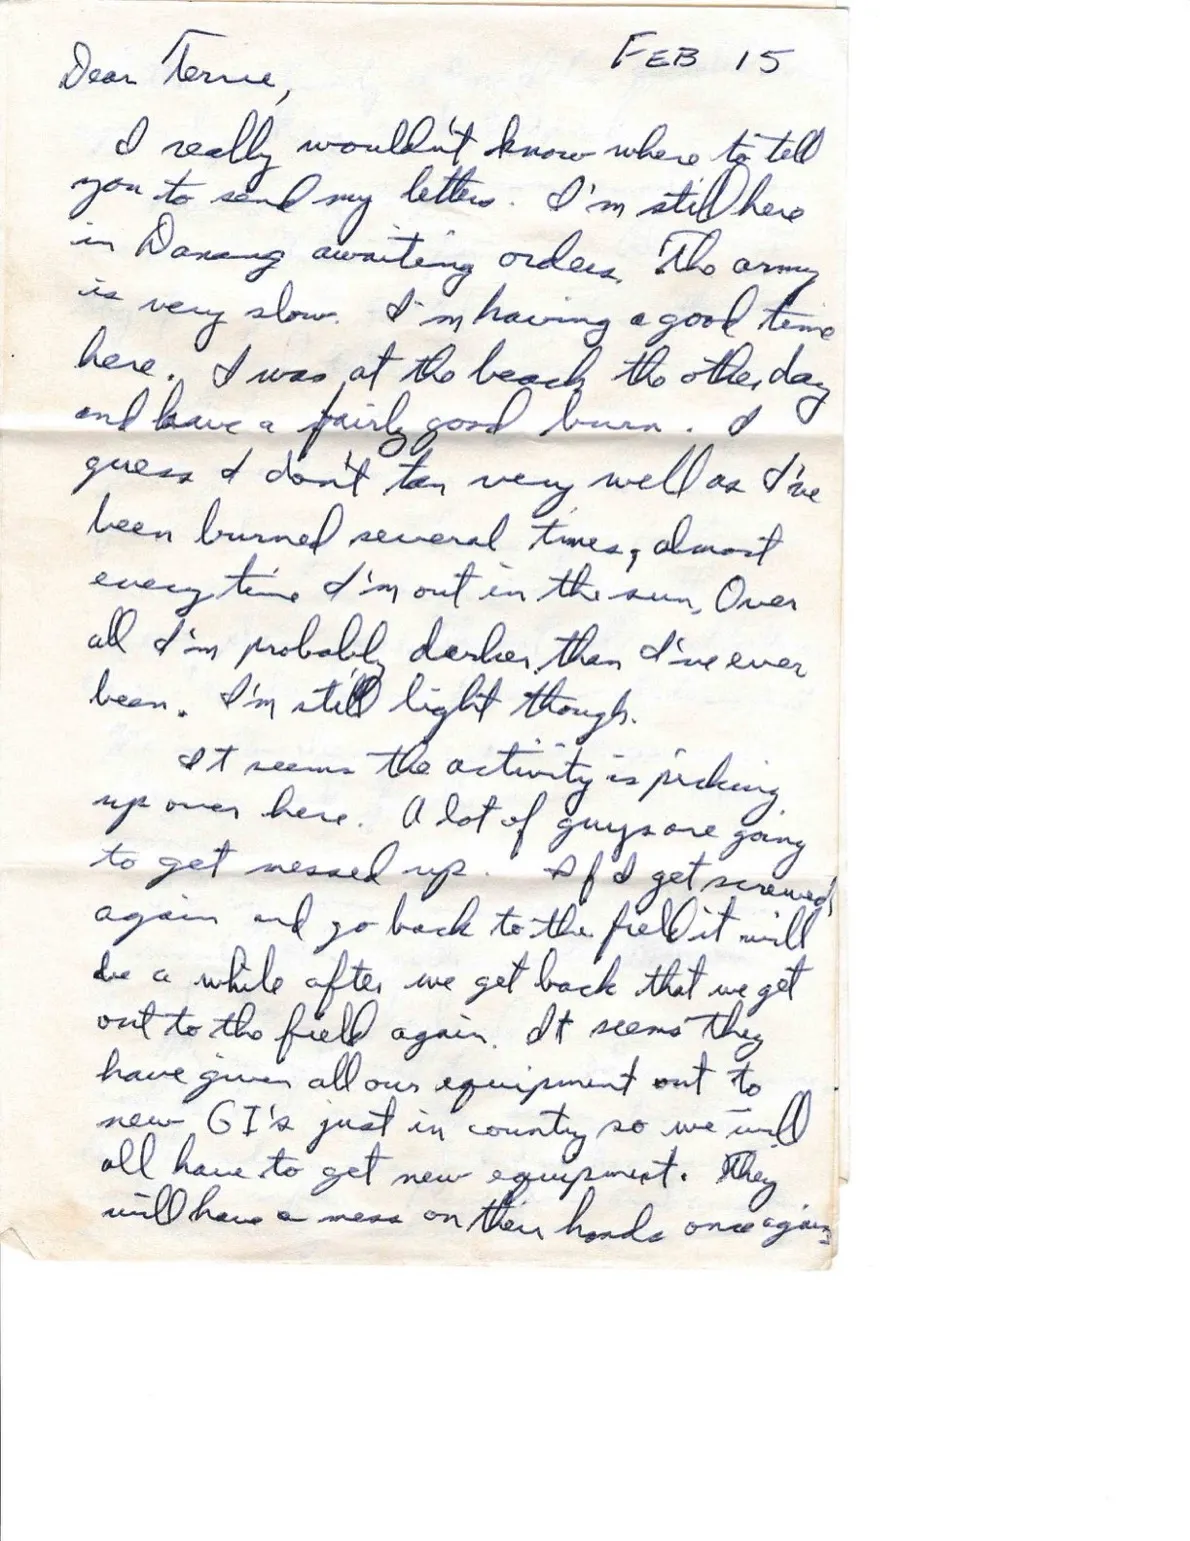 FEB 15
Dear Terrie,
I really wouldn't know where to tell
you to send my letters. I'm still here
in Danang awaiting orders. The army
is very slow. I'm having a good time
here. I was at the beach the other day
and have a fairly good burn. I
guess I don't tan very well as I've
been burned several times, almost
every time I'm out in the sun. Over
all I'm probably darker than I've ever
been. I'm still light though.
It seems the activity is picking
up over here. A lot of guys are going
to get messed up. If I get screwed
again and go back to the field it will
be a while after we get back that we get
out to the field again. It seems they
have given all our equipment out to
new GI's just in country so we will
all have to get new equipment. They
will have a mess on their hands once again